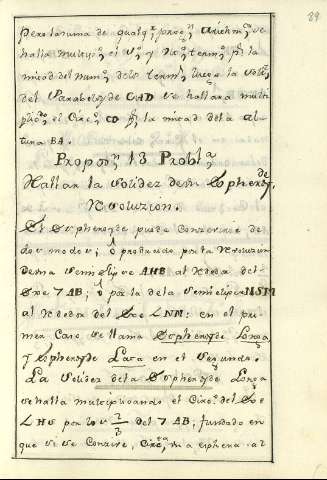 89
Pero la suma de qualq.r prog.n Arithm.ca se
halla multip.do el y term.o p.r la
mitad del num.o de los term.s luego la solid.z
del Paraboloyde CAD se hallara multi-
plic.do el Circ.o CD p.r la mitad de la al-
tura BA.
Propos.n 13 Probl.a
Hallar la solidez de un Spheroyde
Revoluzion.
El Spheroyde puede Concevirse de
dos modos; ó producido por la Revoluzion
de una semi elipse AHB al rededor del
Exe AB; ó por la de la semi elipse NSM
al rededor del Exe NM: en el pri-
mer Caso se llama Spheroyde Longa,
y Spheroyde Lata en el Segundo.
La solidez de la Spheroyde Longa
se halla multiplicando el Circ.o del Exe
HG por los 2/3 del AB; fundado en
que si se Concive, Circ.a una esphera al